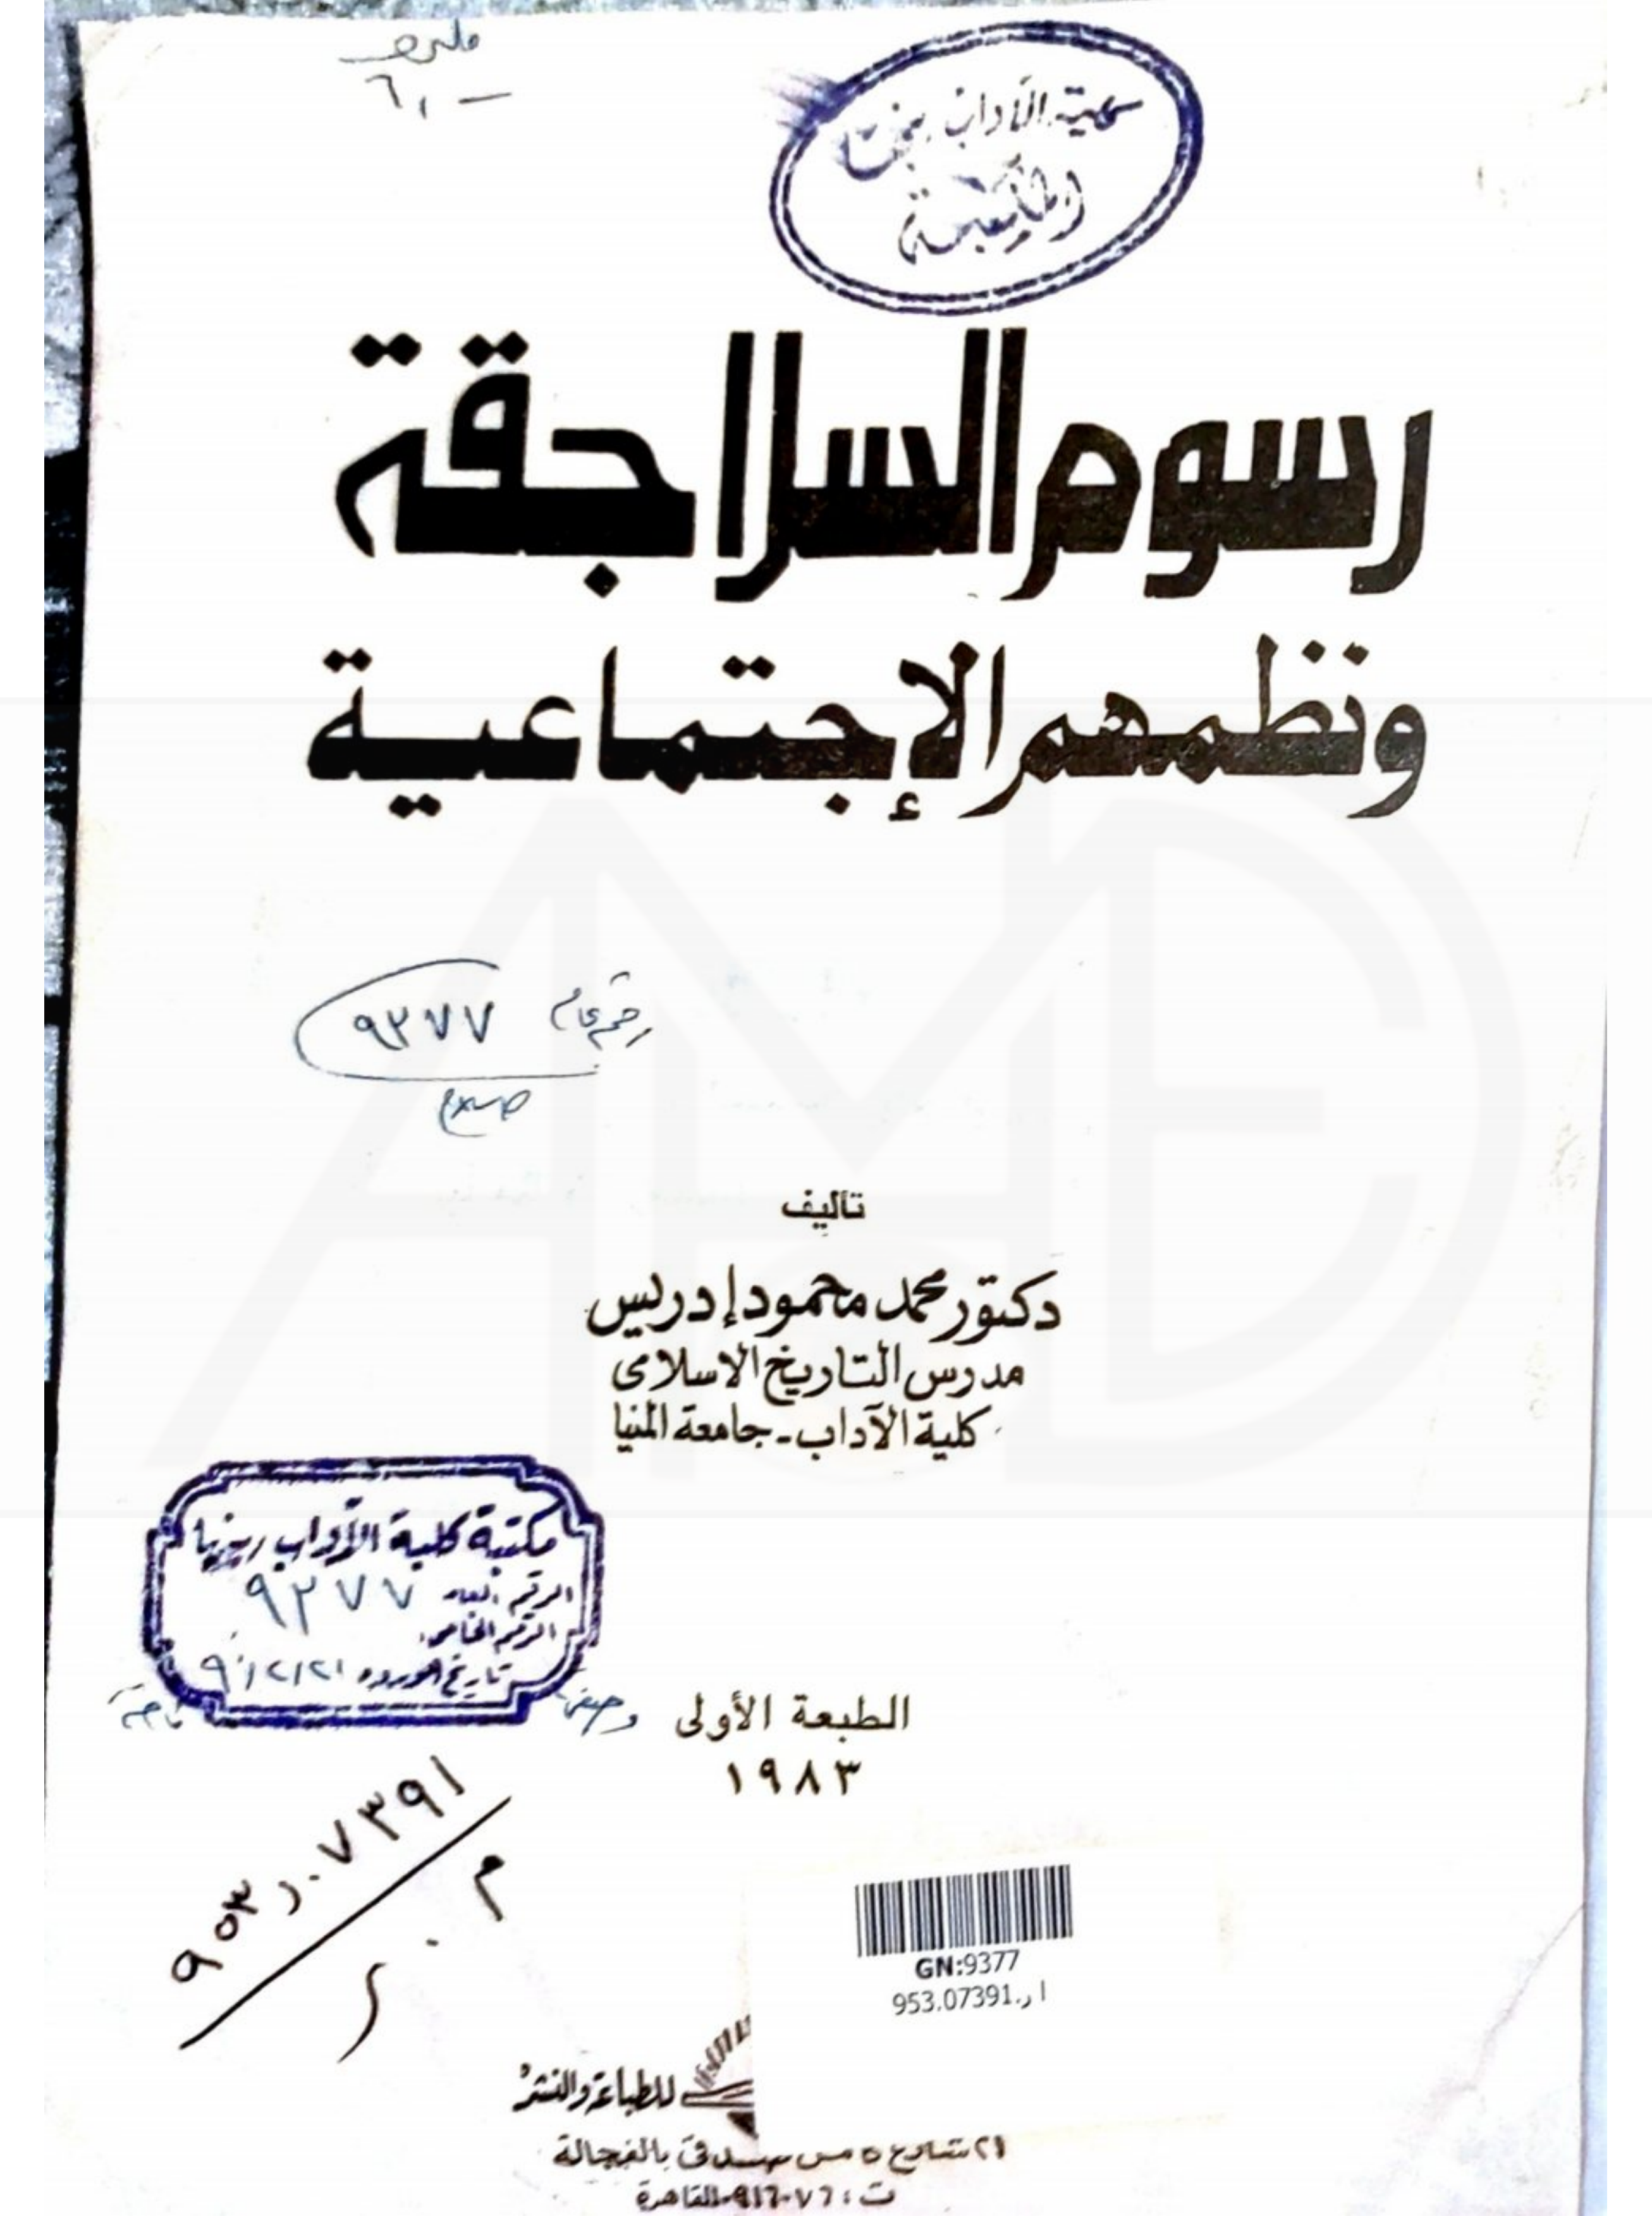 كلية الآداب بقنا
المكتبة
رسوم السلاجقة
ونظمهم الإجتماعية
رقم عام ٩٣٧٧
تأليف
دكتور محمد محمود إدريس
مدرس التاريخ الاسلامى
كلية الآداب - جامعة المنيا
مكتبة كلية الآداب بقنا
الرقم العام ٩٣٧٧
الرقم الخاص
تاريخ الورود
الطبعة الأولى
١٩٨٣
٩٥٣٫٠٧٣٩١
م . ر
GN:9377
953.07391.ا ر
للطباعة والنشر
٢١ شارع كامل صدقى بالفجالة
ت : ٩١٦٠٧٦ - القاهرة